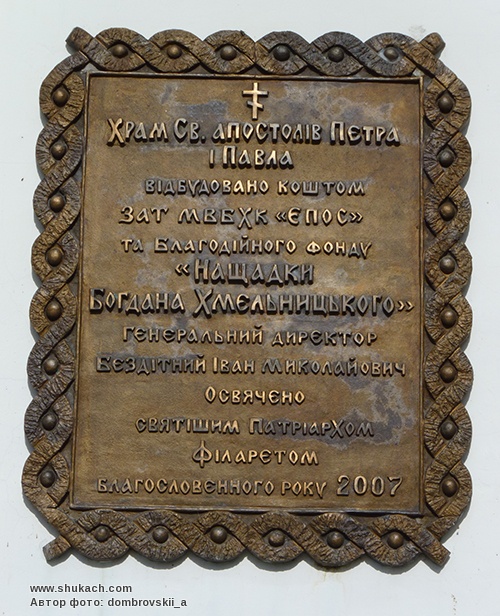 Храм Св. апостолів Петра
і Павла
відбудовано коштом
ЗАТ МВБХК «Епос»
та Благодійного фонду
«Нащадки
Богдана Хмельницького»
генеральний директор
Бездітний Іван Миколайович
Освячено
святішим Патріархом
Філаретом
благословенного року 2007
www.shukach.com
Автор фото: dombrovskii_a